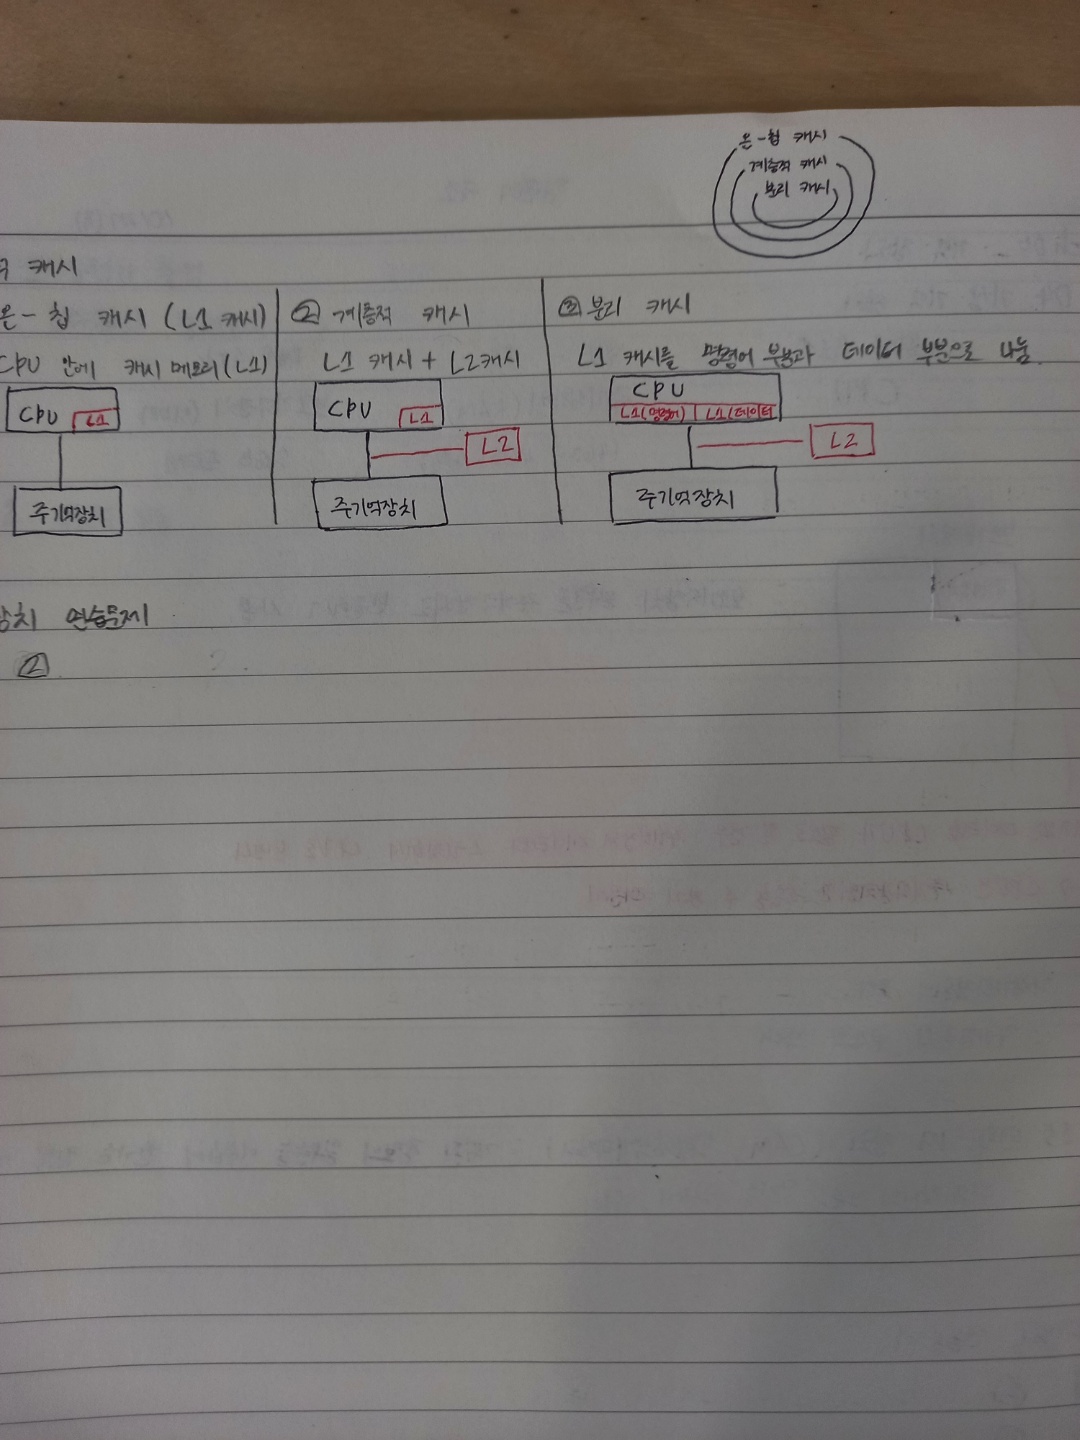 온-칩 캐시
계층적 캐시
분리 캐시
캐시
온-칩 캐시 (L1 캐시)
CPU 안에 캐시 메모리(L1)
CPU L1
주기억장치
② 계층적 캐시
L1 캐시 + L2캐시
CPU L1
L2
주기억장치
③ 분리 캐시
L1 캐시를 명령어 부분과 데이터 부분으로 나눔.
CPU
L1(명령어) L1(데이터)
L2
주기억장치
장치 연습문제
②